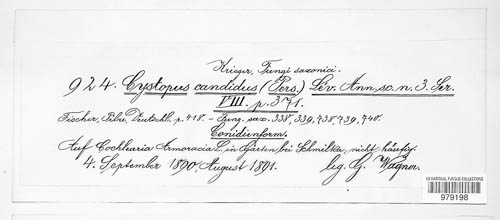 Krieger, Fungi saxonici.
924. Cystopus candidus (Pers.) Lév. Ann. sc. n. 3. Ser.
VIII. p. 371.
Fischer, Pilze Deutschl. p. 418. - Fung. sax. 338, 339, 738, 739, 740.
Conidienform.
Auf Cochlearia Armoracia L. in Gärten bei Schmilka, nicht häufig.
4. September 1890. August 1891. leg. G. Wagner.
US NATIONAL FUNGUS COLLECTIONS
979198